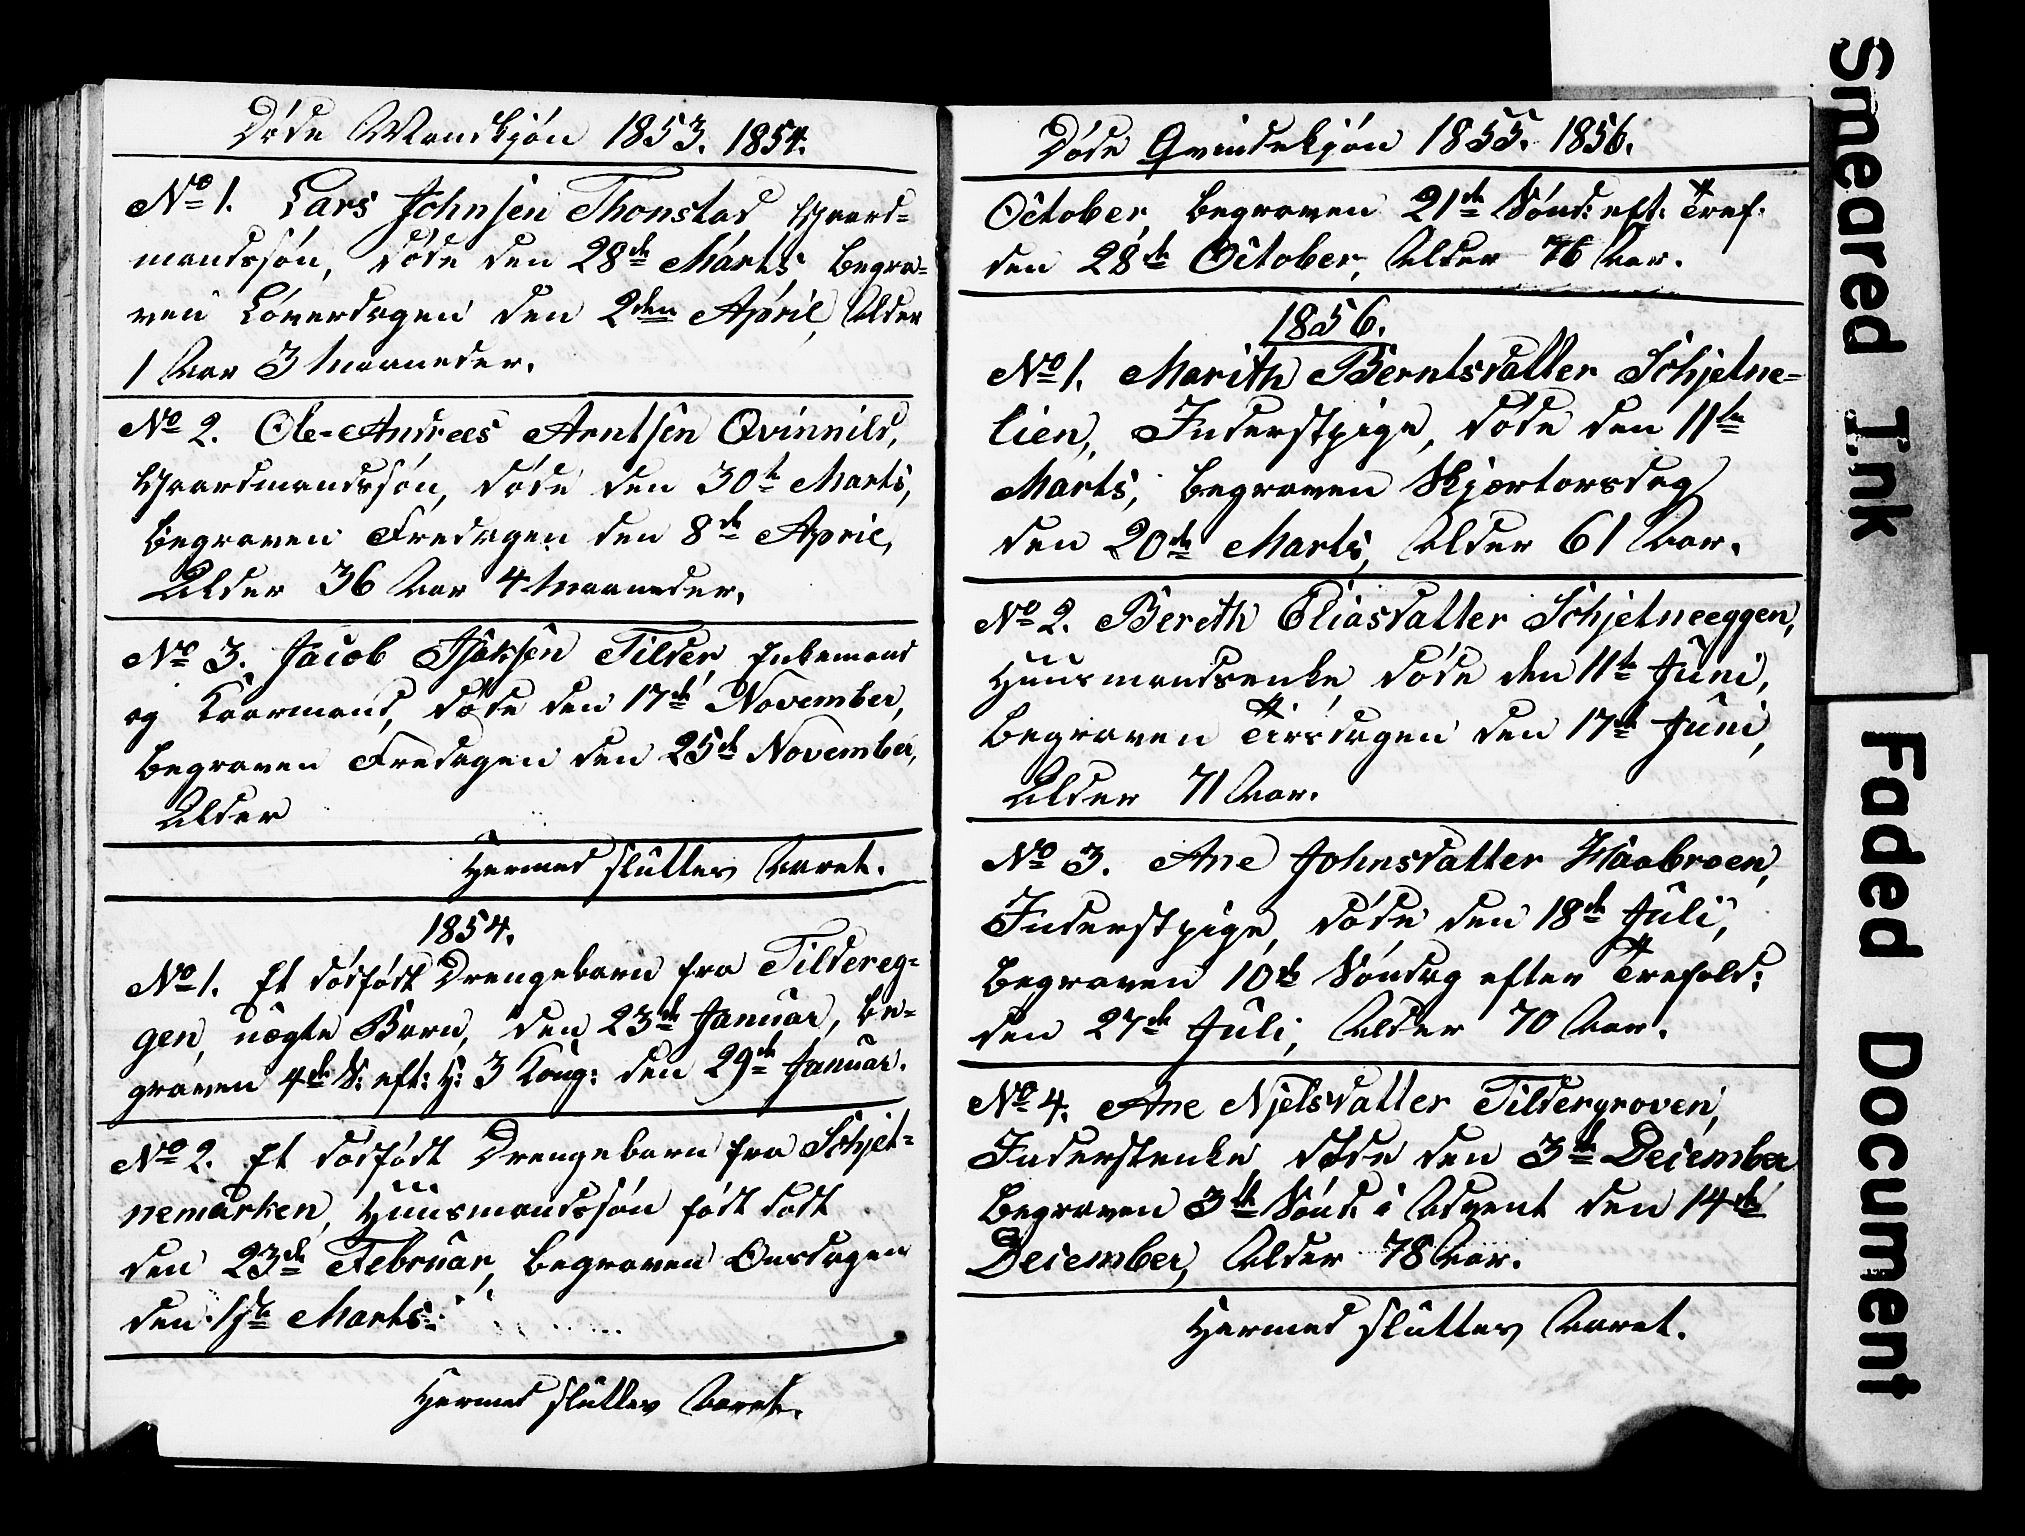 Døde Mandkjøn 1853. 1854.
No 1. Lars Johnsen Thonstad, Gaard-
mandssøn, døde den 28de Marts begra-
ven Løverdagen den 2den April, Alder
1 Aar 3 Maaneder.
No 2. Ole Andreas Arntsen Qvinnild,
Gaardmandssøn, døde den 30te Marts,
begraven Fredagen den 8de April,
Alder 36 Aar 4 Maaneder.
No 3. Jacob Isaksen Tilder, Enkemand
og Kaarmand, døde den 17de November,
begraven Fredagen den 25de November,
Alder
Hermed sluttes Aaret.
1854.
No 1. Et dødfødt Drengebarn fra Tildereg-
gen, uægte Barn, den 23de Januar, be-
graven 4de S: eft: H: 3 Kong: den 29de Januar.
No 2. Et dødfødt Drengebarn fra Schjet-
nemarken, Huusmandssøn født dødt
den 23de Februar, begraven Onsdagen
den 1ste Marts.
Hermed sluttes Aaret.
Døde Qvindekjøn 1855. 1856.
October, begraven 21de Sønd: eft: Tref.
den 28de October, Alder 76 Aar.
1856.
No 1. Marith Berntsdatter Schjetne-
lien, Inderstpige, døde den 11te
Marts, begraven Skjærtorsdag
den 20de Marts, Alder 61 Aar.
No 2. Bereth Eliasdatter Schjetneeggen,
Huusmandsenke, døde den 11te Juni,
begraven Tirsdagen den 17de Juni,
Alder 71 Aar.
No 3. Ane Johnsdatter Haabroen,
Inderstpige, døde den 18de Juli,
begraven 10de Søndag efter Trefold:
den 27de Juli, Alder 70 Aar.
No 4. Ane Njelsdatter Tildergroven,
Inderstenke, døde den 3de December
begraven 3de Sønd: i Advent den 14de
December, Alder 78 Aar.
Hermed sluttes Aaret.
Smeared Ink
Faded Document